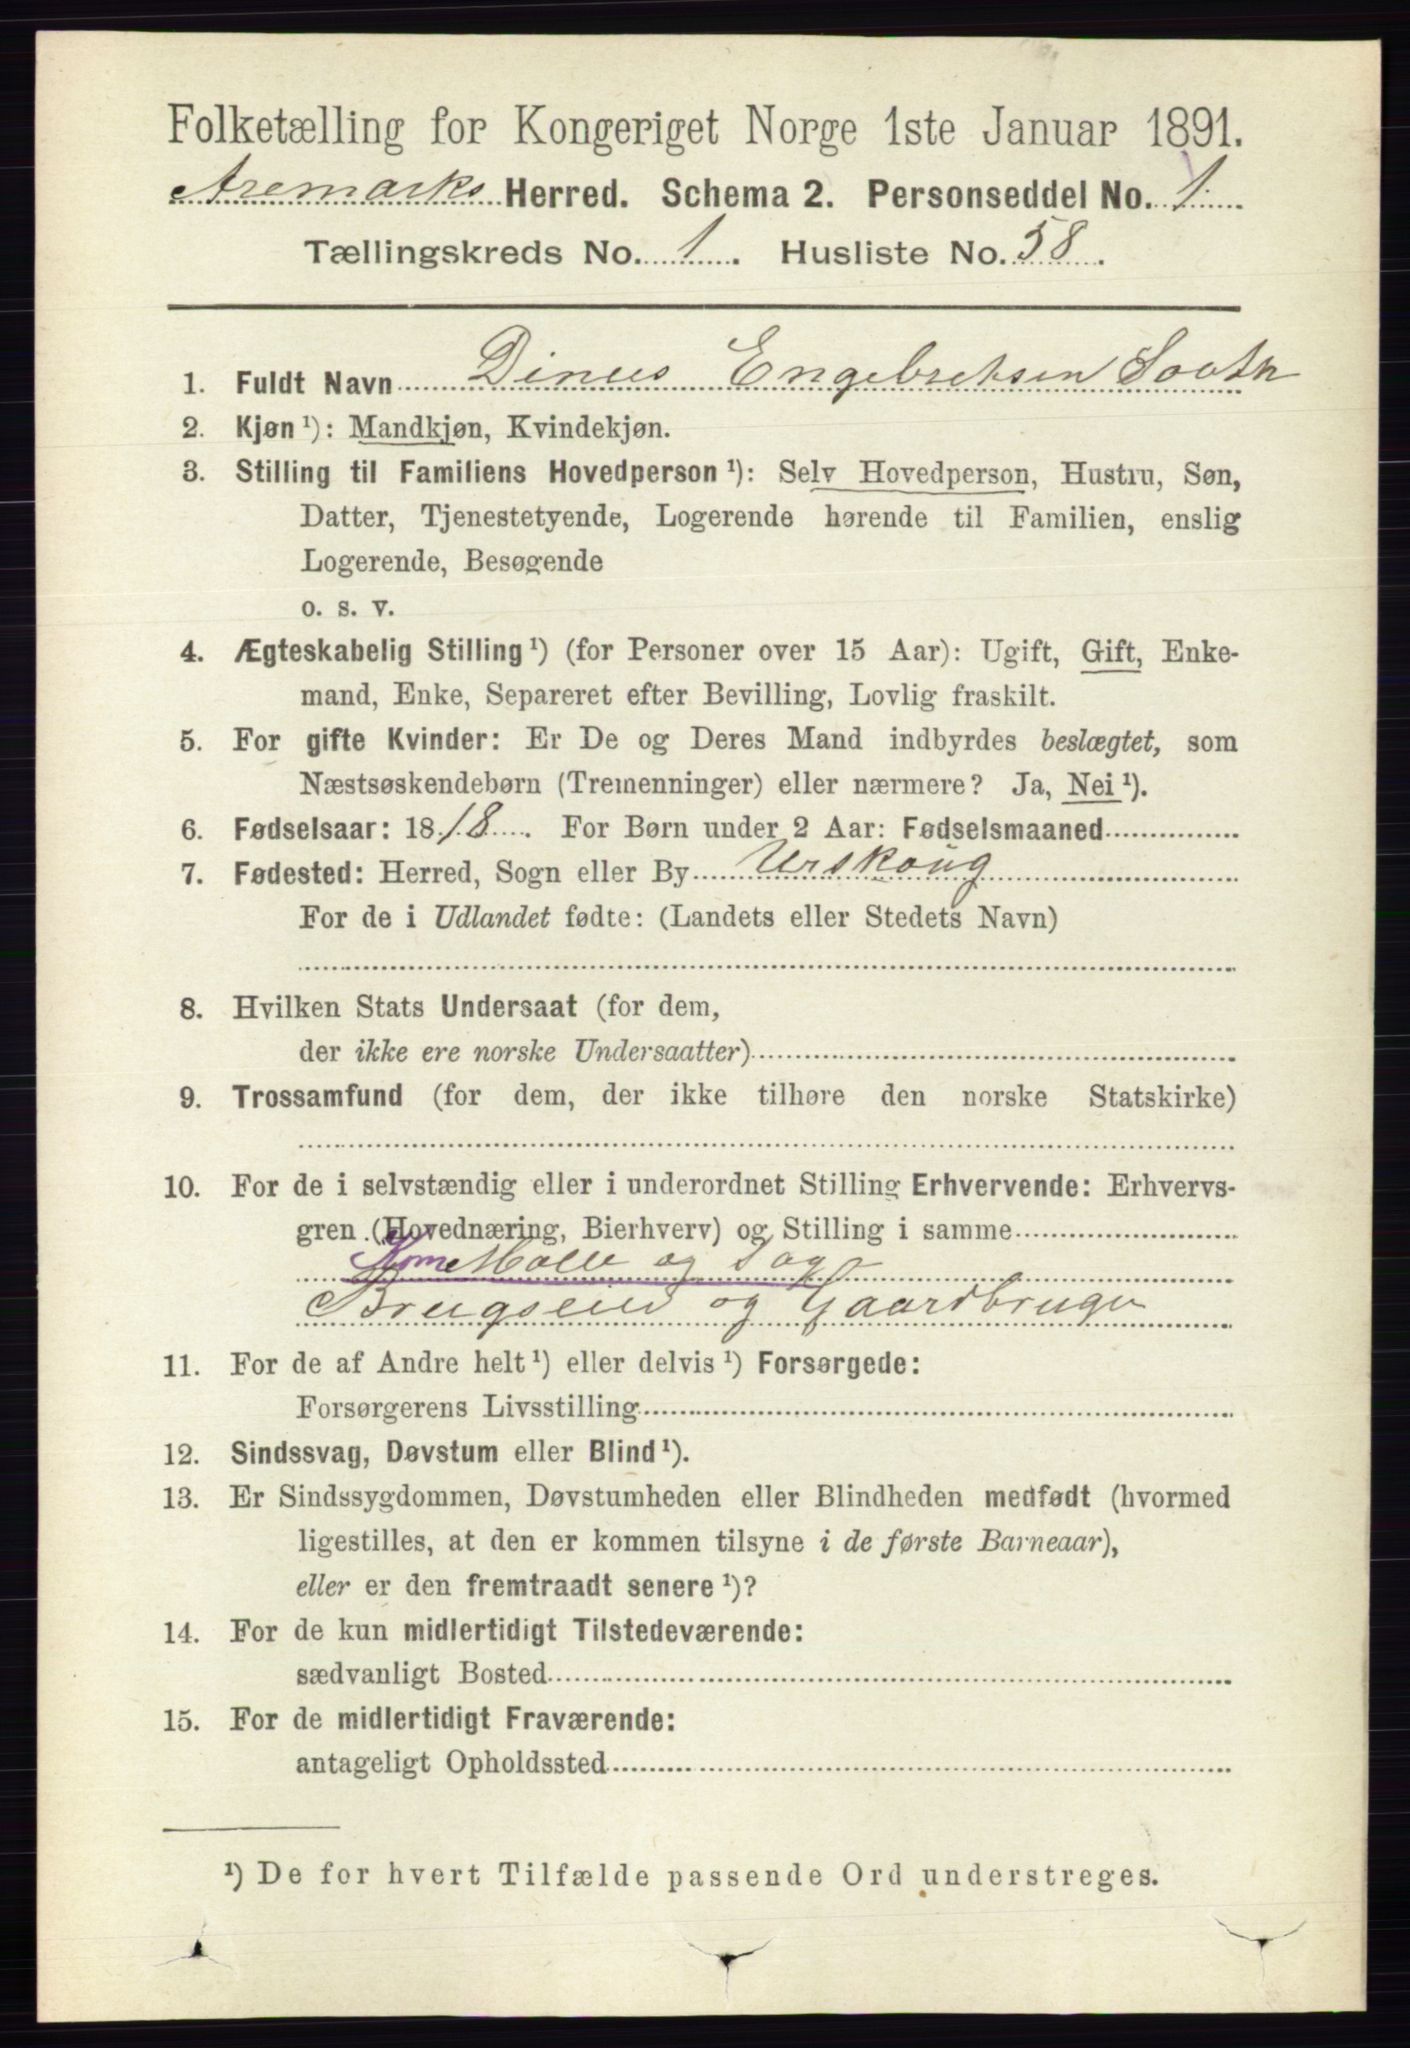 Folketælling for Kongeriget Norge 1ste Januar 1891.
Aremarks Herred. Schema 2. Personseddel No. 1
Tællingskreds No. 1. Husliste No. 58.
1. Fuldt Navn Dinus Engebretsen Sooth
2. Kjøn ¹): Mandkjøn, Kvindekjøn.
3. Stilling til Familiens Hovedperson ¹): Selv Hovedperson, Hustru, Søn,
Datter, Tjenestetyende, Logerende hørende til Familien, enslig
Logerende, Besøgende
o. s. v.
4. Ægteskabelig Stilling ¹) (for Personer over 15 Aar): Ugift, Gift, Enke-
mand, Enke, Separeret efter Bevilling, Lovlig fraskilt.
5. For gifte Kvinder: Er De og Deres Mand indbyrdes beslægtet, som
Næstsøskendebørn (Tremenninger) eller nærmere? Ja, Nei ¹).
6. Fødselsaar: 1818. For Børn under 2 Aar: Fødselsmaaned
7. Fødested: Herred, Sogn eller By Urskoug
For de i Udlandet fødte: (Landets eller Stedets Navn)
8. Hvilken Stats Undersaat (for dem,
der ikke ere norske Undersaatter)
9. Trossamfund (for dem, der ikke tilhøre den norske Statskirke)
10. For de i selvstændig eller i underordnet Stilling Erhvervende: Erhvervs-
gren (Hovednæring, Bierhverv) og Stilling i samme
Korn Mølle og Sag
Brugseier og Gaardbruger
11. For de af Andre helt ¹) eller delvis ¹) Forsørgede:
Forsørgerens Livsstilling
12. Sindssvag, Døvstum eller Blind ¹).
13. Er Sindssygdommen, Døvstumheden eller Blindheden medfødt (hvormed
ligestilles, at den er kommen tilsyne i de første Barneaar),
eller er den fremtraadt senere ¹)?
14. For de kun midlertidigt Tilstedeværende:
sædvanligt Bosted
15. For de midlertidigt Fraværende:
antageligt Opholdssted
¹) De for hvert Tilfælde passende Ord understreges.